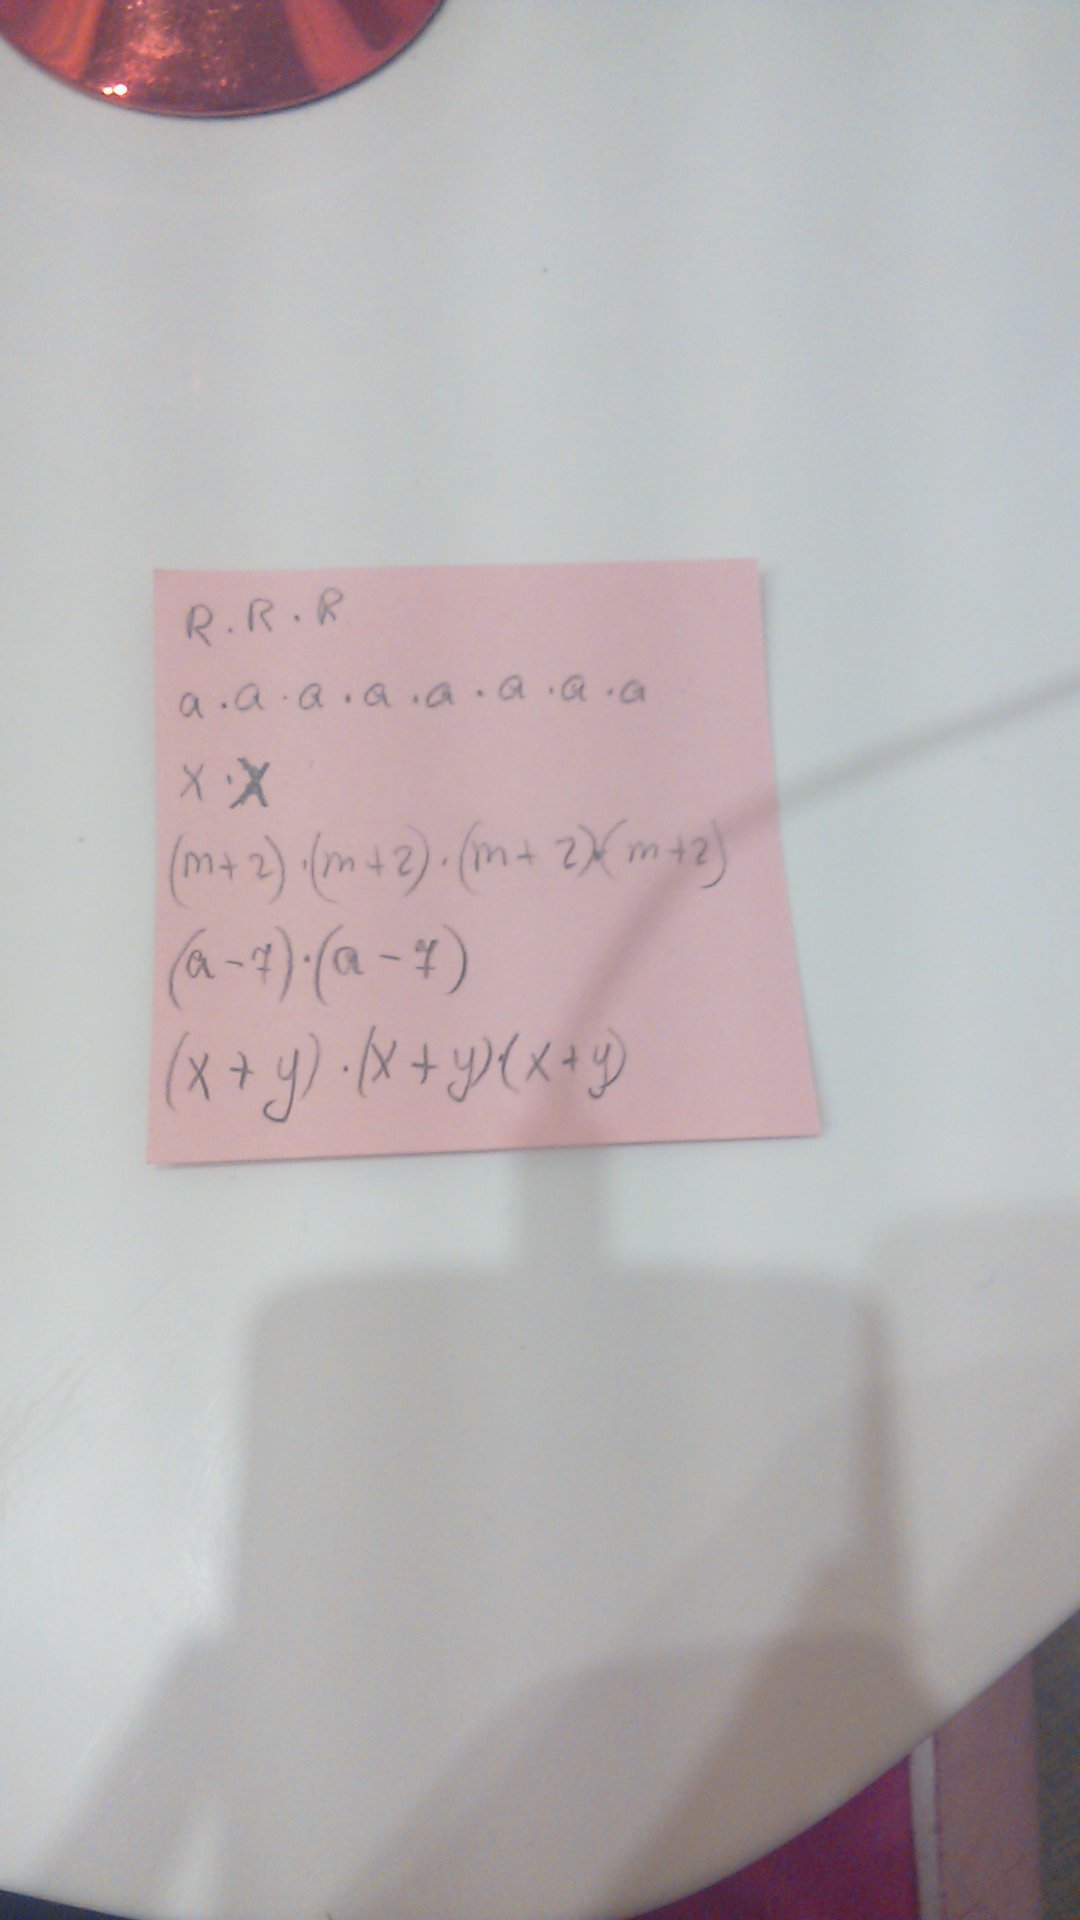 R.R.R
a.a.a.a.a.a.a.a
x.x
(m+2).(m+2).(m+2).(m+2)
(a-7).(a-7)
(x+y).(x+y).(x+y)